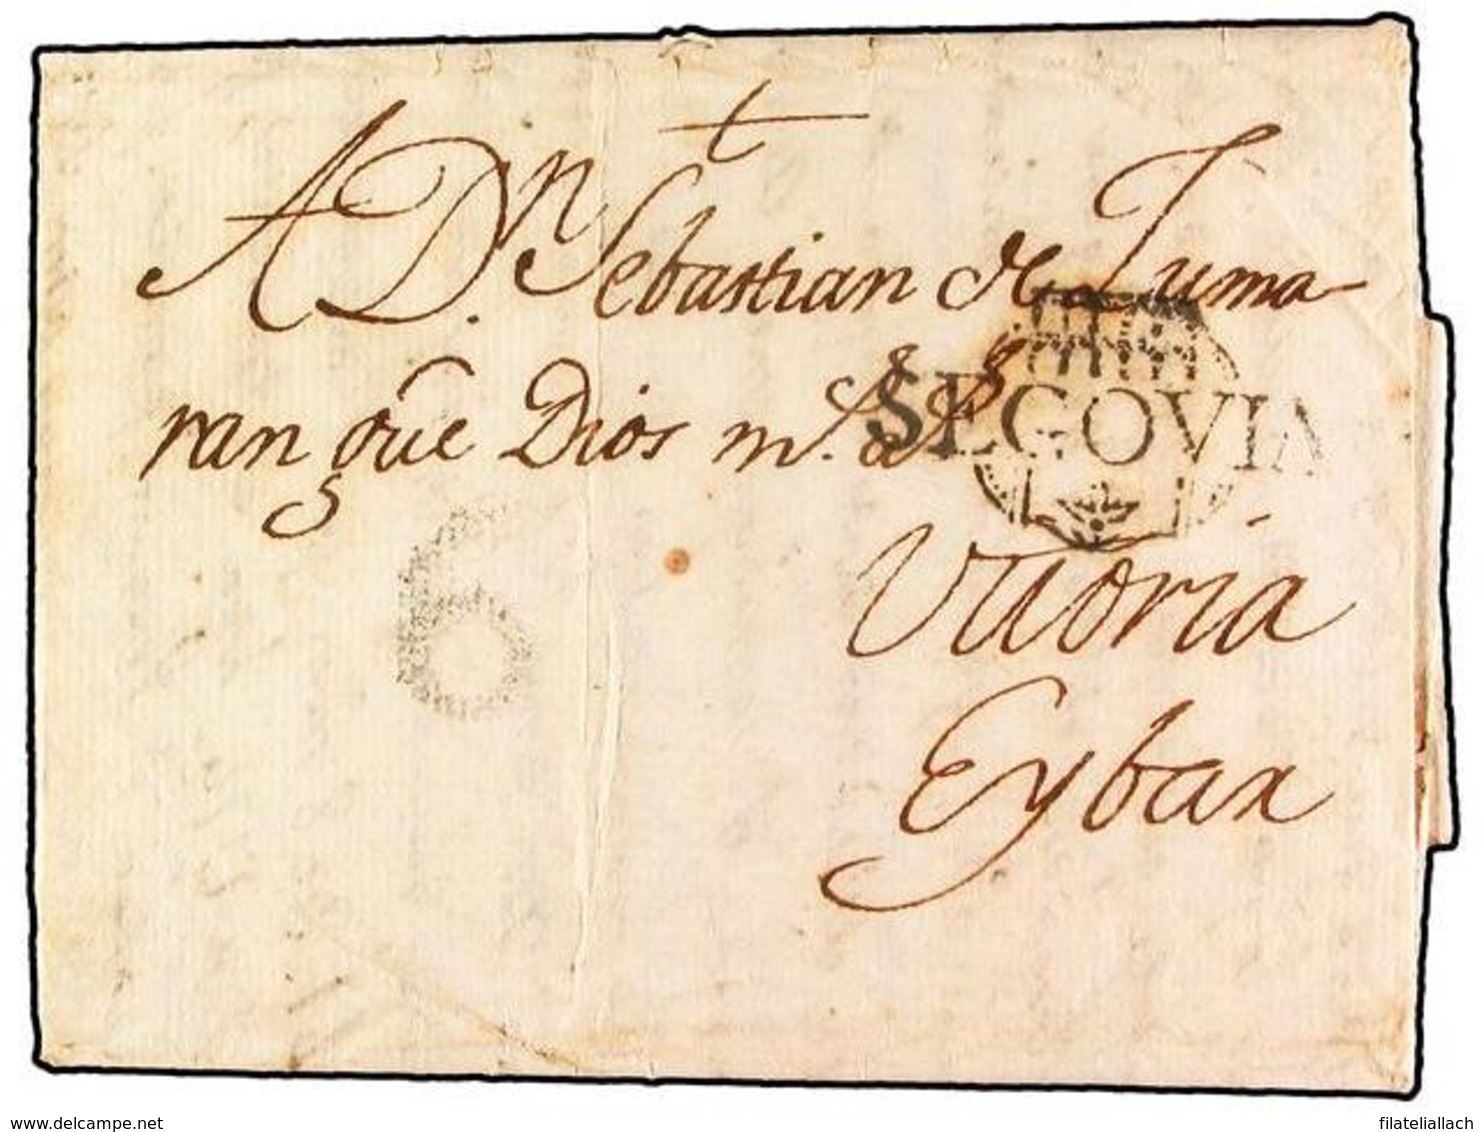 A Dn. Sebastian de Zuma-
ran gũe Dios ms. as.
SEGOVIA
6
Vitoria
Eybar
www.delcampe.net
filateliallach